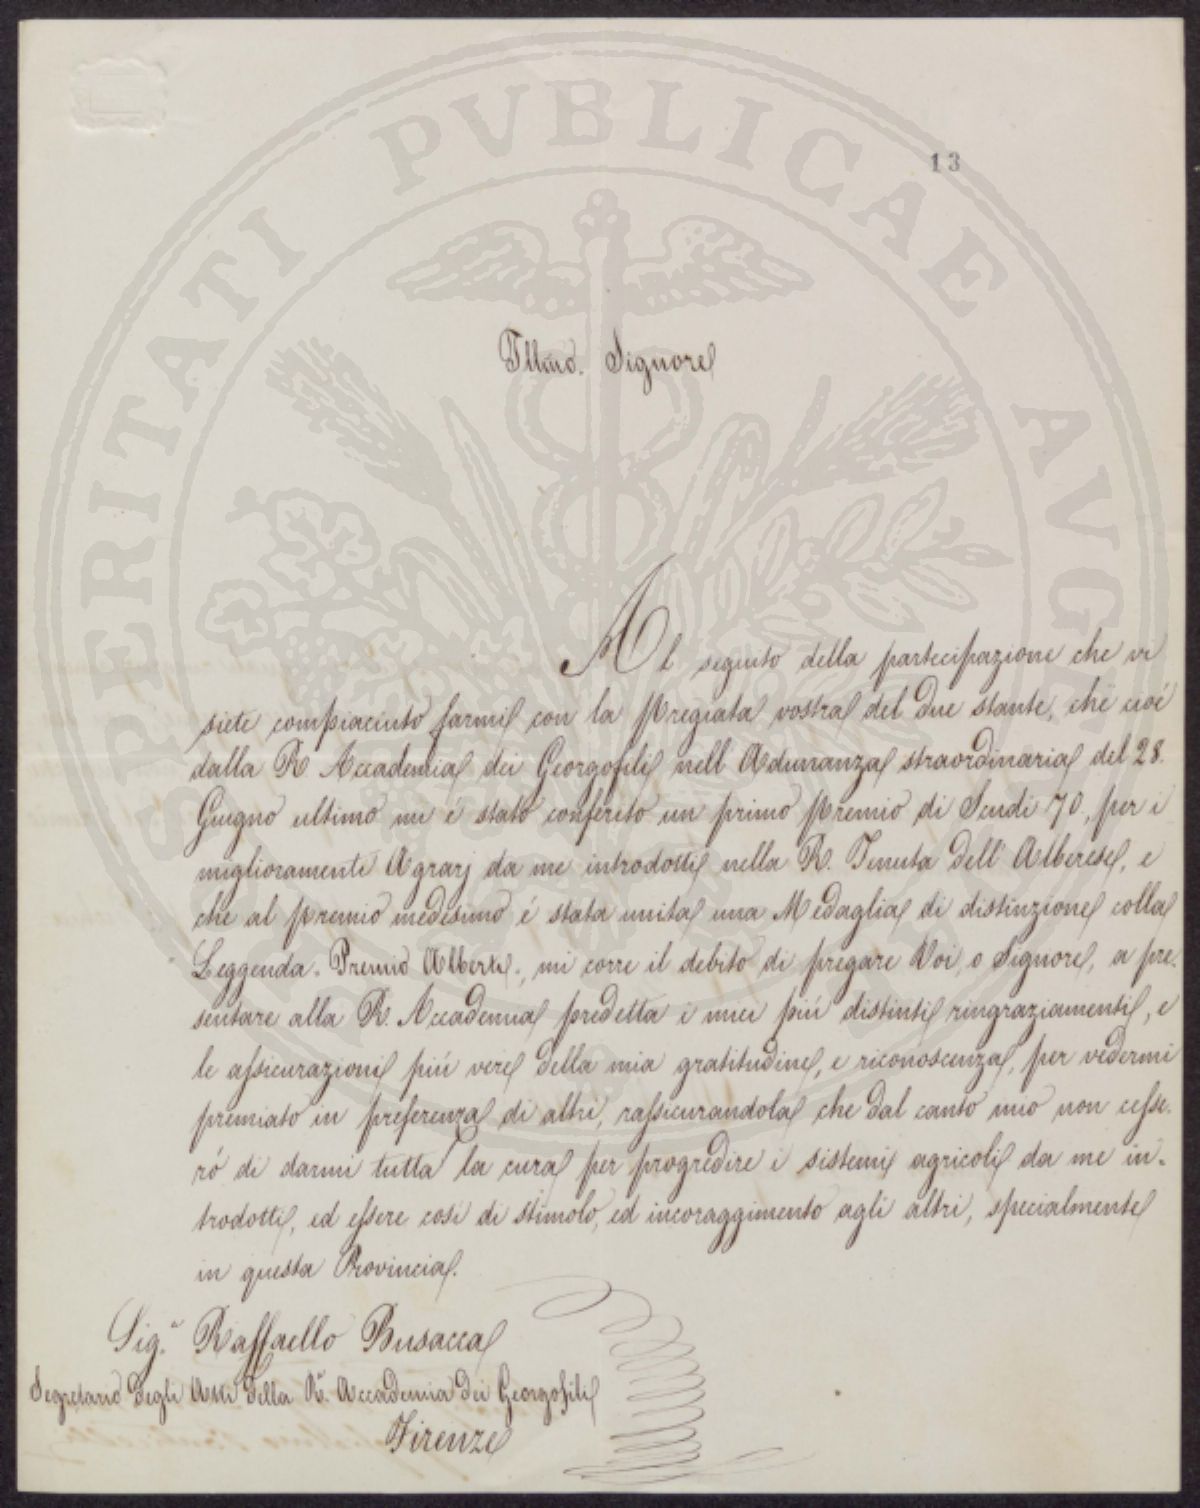 PROSPERITATI PVBLICAE AVGENDAE
13
Illmo. Signore
Al seguito della partecipazione che vi
siete compiaciuto farmi con la pregiata vostra del due stante, che cioè
dalla R Accademia dei Georgofili nell Adunanza straordinaria del 28.
Giugno ultimo mi é stato conferito un primo premio di Scudi 70., per i
miglioramenti Agrarj da me introdotti nella R. Tenuta dell' Alberese, e
che al premio medesimo é stata unita una Medaglia di distinzione colla
Leggenda. Premio Alberti., mi corre il debito di pregare Voi, o Signore, a pre-
sentare alla R. Accademia predetta i miei piú distinti ringraziamenti, e
le assicurazioni piú vere della mia gratitudine, e riconoscenza, per vedermi
premiato in preferenza di altri, rassicurandola che dal canto mio non cesse-
ró di darmi tutta la cura per progredire i sistemi agricoli da me in-
trodotti, ed essere cosi di stimolo, ed incoraggimento agli altri, specialmente
in questa Provincia.
Sig.r Raffaello Busacca
Segretario degli Atti della R. Accademia dei Georgofili
Firenze